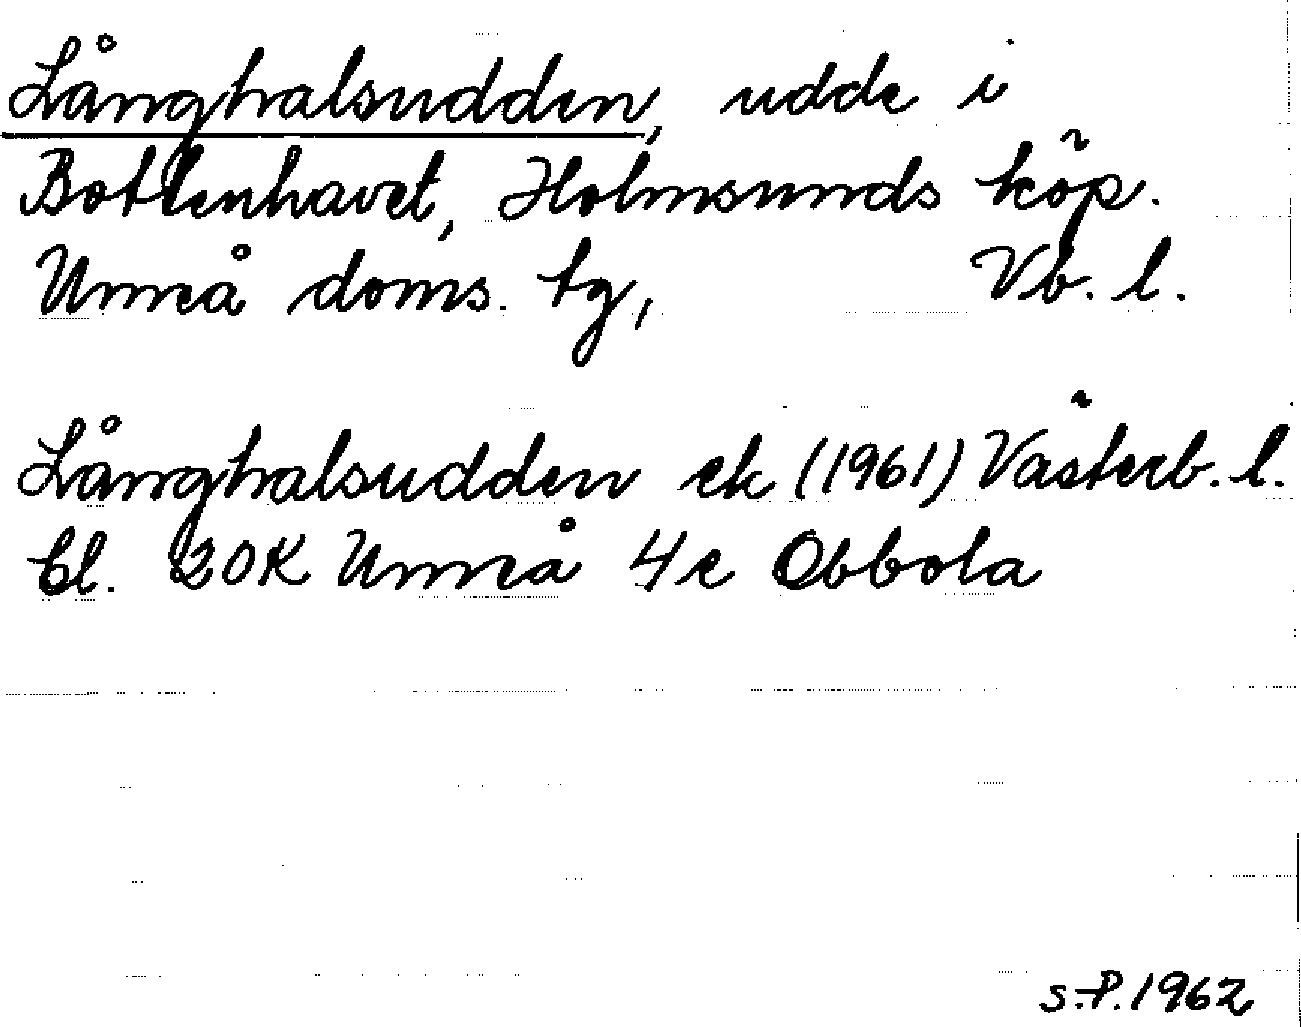 Långhalsudden, udde i
Bottenhavet, Holmsunds köp.
Umeå doms. tg, Vb. l.
Långhalsudden ek (1961) Västerb. l.
bl. 20K Umeå 4e Obbola
S.P. 1962